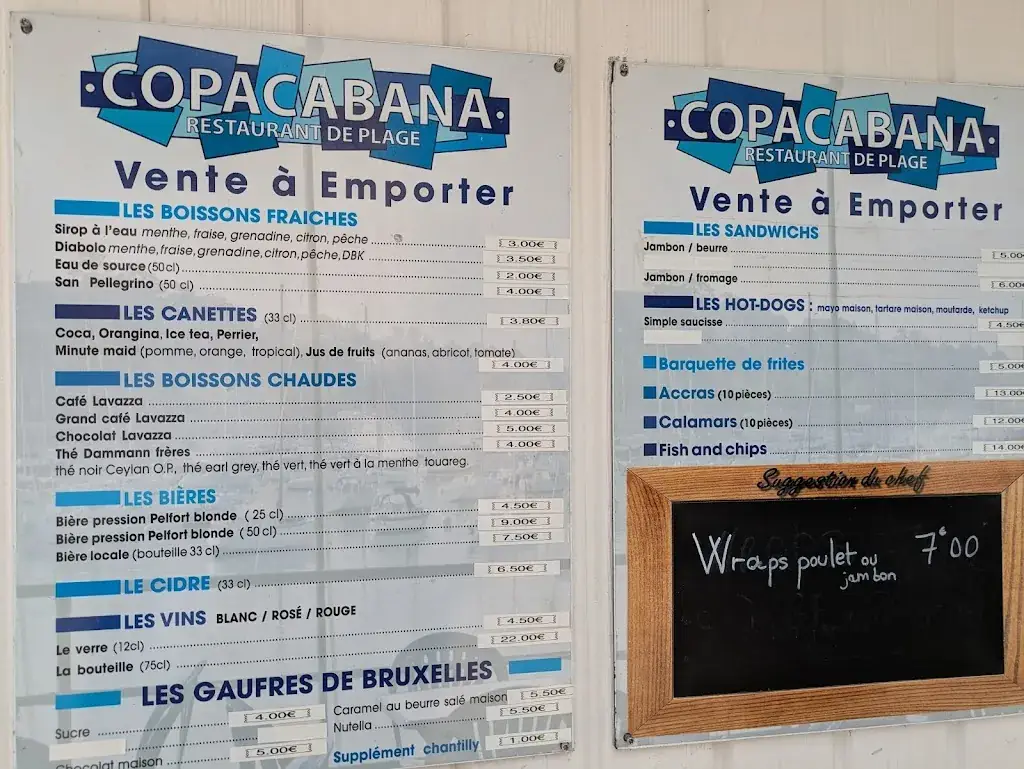 COPACABANA
RESTAURANT DE PLAGE
Vente à Emporter
LES BOISSONS FRAICHES
Sirop à l'eau menthe, fraise, grenadine, citron, pêche 3.00€
Diabolo menthe, fraise, grenadine, citron, pêche, DBK 3.50€
Eau de source (50cl) 2.00€
San Pellegrino (50 cl) 4.00€
LES CANETTES (33 cl) 3.80€
Coca, Orangina, Ice tea, Perrier,
Minute maid (pomme, orange, tropical), Jus de fruits (ananas, abricot, tomate) 4.00€
LES BOISSONS CHAUDES
Café Lavazza 2.50€
Grand café Lavazza 4.00€
Chocolat Lavazza 5.00€
Thé Dammann frères 4.00€
thé noir Ceylan O.P., thé earl grey, thé vert, thé vert à la menthe touareg.
LES BIÈRES
Bière pression Pelfort blonde ( 25 cl) 4.50€
Bière pression Pelfort blonde ( 50 cl) 9.00€
Bière locale (bouteille 33 cl) 7.50€
LE CIDRE (33 cl) 6.50€
LES VINS BLANC / ROSÉ / ROUGE
Le verre (12cl) 4.50€
La bouteille (75cl) 22.00€
LES GAUFRES DE BRUXELLES
Sucre 4.00€
Chocolat maison 5.00€
Caramel au beurre salé maison 5.50€
Nutella 5.50€
Supplément chantilly 1.00€
COPACABANA
RESTAURANT DE PLAGE
Vente à Emporter
LES SANDWICHS
Jambon / beurre 5.00
Jambon / fromage 6.00€
LES HOT-DOGS : mayo maison, tartare maison, moutarde, ketchup
Simple saucisse 4.50€
Barquette de frites 5.00€
Accras (10 pièces) 13.00
Calamars (10 pièces) 12.00€
Fish and chips 14.00€
Suggestion du chef
Wraps poulet ou 7€00
jambon